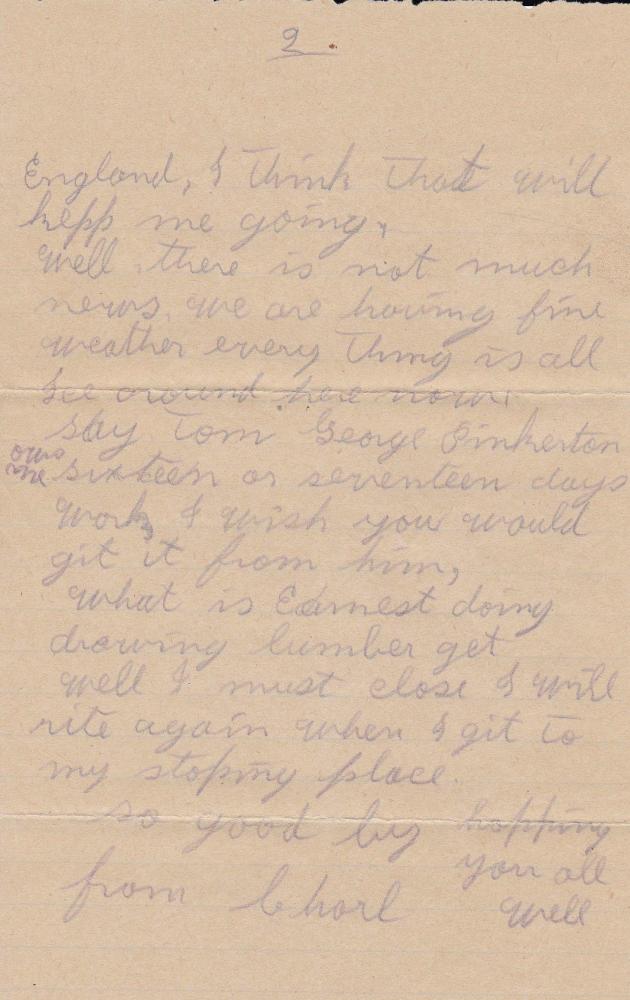 2.
England, I think that will
kepp me going,
well there is not much
news. we are having fine
weather every thing is all
Ice around here now.
say Tom George Pinkerton
ows me sixteen or seventeen days
work, I wish you would
git it from him,
what is Earnest doing
drawing lumber get
well I must close I will
rite again when I git to
my stoping place.
so good by hopping
you all
well
from Charl